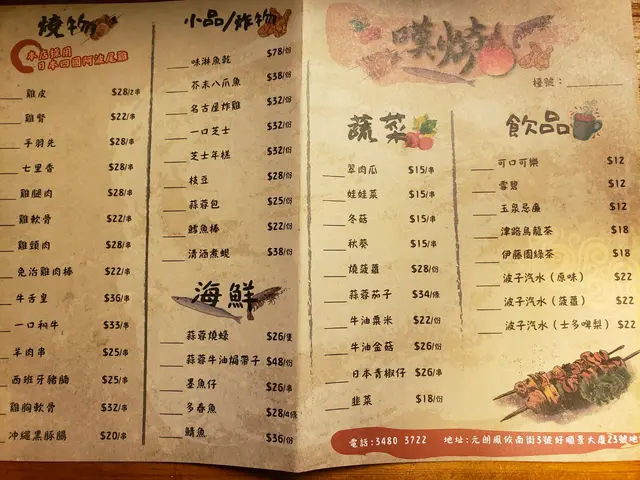 燒物
本店採用
日本四國阿波尾雞
雞皮 $28/2串
雞腎 $22/串
手羽先 $28/串
七里香 $28/串
雞腿肉 $28/串
雞軟骨 $22/串
雞頸肉 $28/串
免治雞肉棒 $22/串
牛舌皇 $36/串
一口和牛 $33/串
羊肉串 $25/串
西班牙豬腩 $25/串
雞胸軟骨 $32/串
沖繩黑豚腸 $20/串
小品/炸物
味淋魚乾 $78/份
芥末八爪魚 $38/份
名古屋炸雞 $32/份
一口芝士 $32/份
芝士年糕 $32/份
枝豆 $28/份
蒜蓉包 $25/份
鱈魚棒 $22/份
清酒煮蜆 $38/份
海鮮
蒜蓉燒蠔 $26/隻
蒜蓉牛油焗帶子 $48/份
墨魚仔 $26/串
多春魚 $28/4條
鯖魚 $36/份
噗烤
檯號：
蔬菜
翠肉瓜 $15/串
娃娃菜 $15/串
冬菇 $15/串
秋葵 $15/串
燒菠蘿 $28/份
蒜蓉茄子 $34/條
牛油粟米 $22/份
牛油金菇 $26/份
日本青椒仔 $26/串
韭菜 $18/份
飲品
可口可樂 $12
雪碧 $12
玉泉忌廉 $12
津路烏龍茶 $18
伊藤園綠茶 $18
波子汽水（原味） $22
波子汽水（菠蘿） $22
波子汽水（士多啤梨） $22
電話:3480 3722 地址:元朗鳳攸南街3號好順景大廈23號地